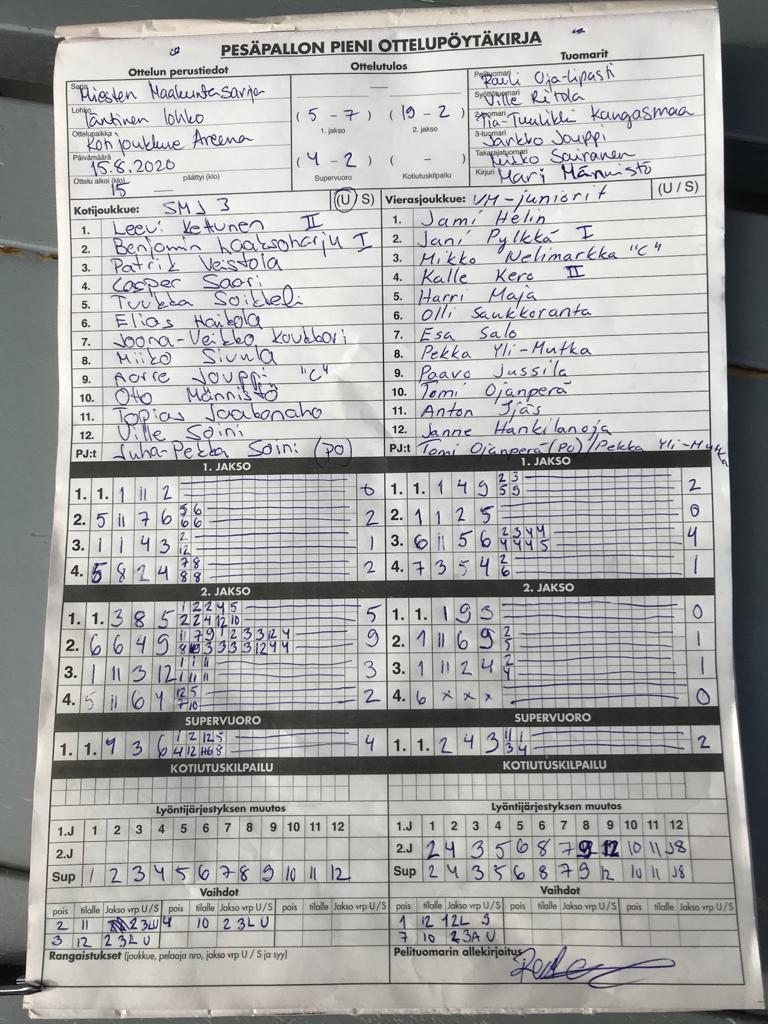 PESÄPALLON PIENI OTTELUPÖYTÄKIRJA
Ottelun perustiedot
Ottelutulos
Tuomarit
Sarja Miesten Maakuntasarja
Lohko Läntinen lohko
Ottelupaikka Kotijoukkue Areena
Päivämäärä 15.8.2020
Ottelu alkoi (klo) 15 päättyi (klo)
( 5 - 7 ) ( 19 - 2 )
1. jakso 2. jakso
( 4 - 2 ) ( - )
Supervuoro Kotiutuskilpailu
Pelituomari Rauli Oja-Lipasti
Syöttötuomari Ville Ritola
2-tuomari Tia-Tuulikki Kangasmaa
3-tuomari Jarkko Jouppi
Takarajatuomari Sauranen
Kirjuri Mari Männistö
Kotijoukkue: SMJ 3 (U / S)
1. Leevi Kettunen II
2. Benjamin Laaksoharju I
3. Patrik Veistola
4. Casper Saari
5. Tuukka Soikkeli
6. Elias
7. Joona-Veikko Koukkari
8. Miiko Sivula
9. Aarre Jouppi "C"
10. Otto Männistö
11. Topias Jaakonaho
12. Ville Soini
PJ:t Juha-Pekka Soini (PO)
Vierasjoukkue: VM-juniorit (U / S)
1. Jami Helin
2. Jani Pylkkä I
3. Mikko Nelimarkka "C"
4. Kalle Kero II
5. Harri Maja
6. Olli Saukkoranta
7. Esa Salo
8. Pekka Yli-Mutka
9. Paavo Jussila
10. Tomi Ojanperä
11. Anton Ijäs
12. Janne Hankilanoja
PJ:t Tomi Ojanperä (PO) / Pekka Yli-Mutka
1. JAKSO
1. 1. 1 11 2 0
2. 5 11 7 6 5 6 2
6 6
3. 1 1 4 3 2 1
12
4. 5 8 2 4 7 8 2
8 8
1. JAKSO
1. 1. 1 4 9 2 3 2
5 9
2. 1 1 2 5 0
3. 6 11 5 6 2 3 4 4 4
4 4 4 5
4. 7 3 5 4 2 1
6
2. JAKSO
1. 1. 3 8 5 1 2 2 4 5 5
2 2 4 12 10
2. 6 6 4 9 11 7 9 1 2 3 3 12 4 9
8 10 3 3 3 3 12 4 4
3. 1 11 3 12 1 1 11 3
1 11 11
4. 5 11 6 4 12 5 2
7 10
2. JAKSO
1. 1. 1 9 3 0
2. 1 11 6 9 2 1
5
3. 1 11 2 4 2 1
4
4. 6 x x x 0
SUPERVUORO
1. 1. 9 3 6 1 2 12 5 4
4 12 8
SUPERVUORO
1. 1. 2 4 3 11 1 2
3 4
KOTIUTUSKILPAILU
KOTIUTUSKILPAILU
Lyöntijärjestyksen muutos
1.J 1 2 3 4 5 6 7 8 9 10 11 12
2.J
Sup 1 2 3 4 5 6 7 8 9 10 11 12
Lyöntijärjestyksen muutos
1.J 1 2 3 4 5 6 7 8 9 10 11 12
2.J 2 4 3 5 6 8 7 9 12 10 11 J8
Sup 2 4 3 5 6 8 7 9 12 10 11 J8
Vaihdot
pois tilalle Jakso vrp U / S pois tilalle Jakso vrp U / S pois tilalle Jakso vrp U / S
2 11 2 3L U 4 10 2 3L U
3 12 2 3L U
Vaihdot
pois tilalle Jakso vrp U / S pois tilalle Jakso vrp U / S pois tilalle Jakso vrp U / S
1 12 1 2L S
7 10 2 3A U
Rangaistukset (joukkue, pelaaja nro, jakso vrp U / S ja syy)
Pelituomarin allekirjoitus